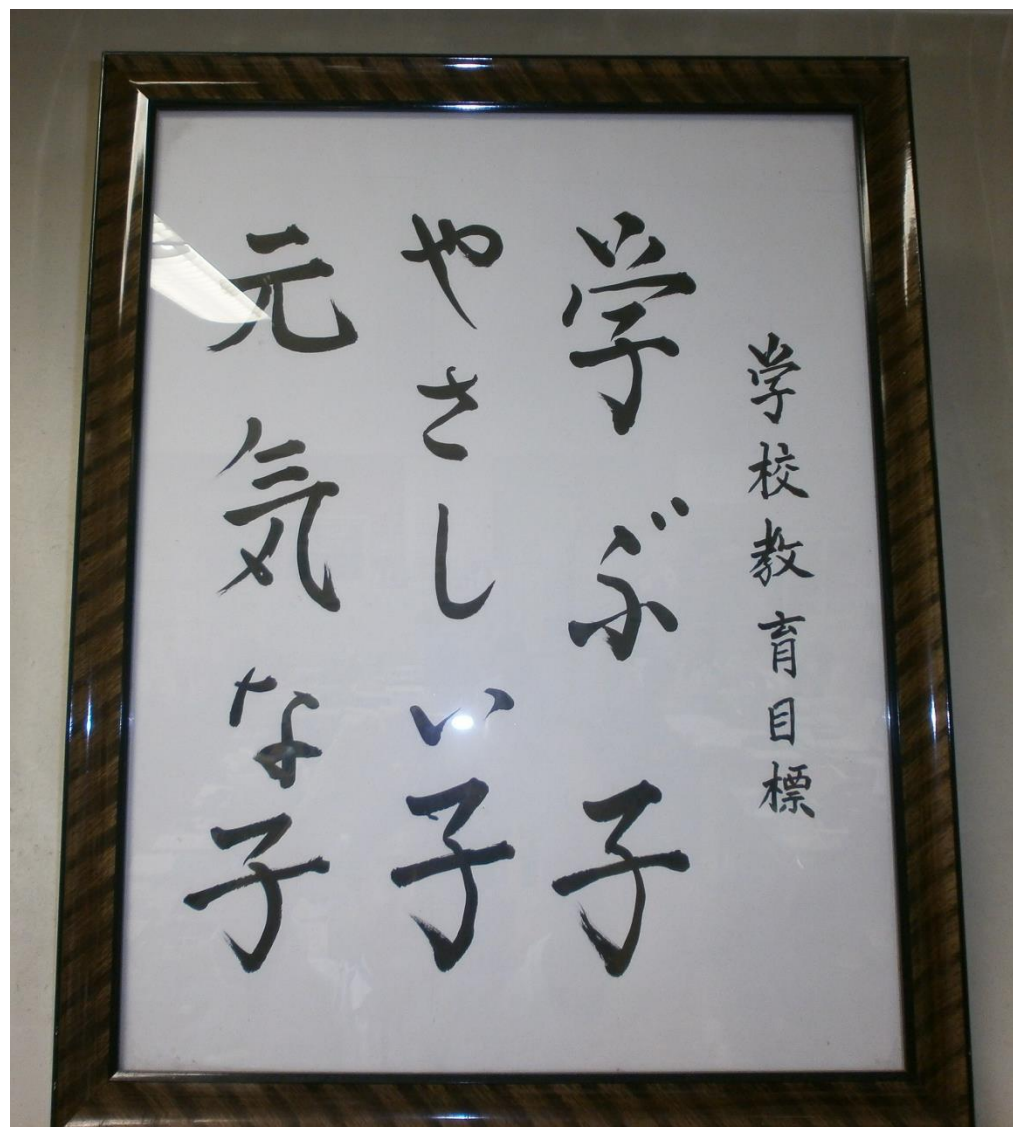 学校教育目標
学ぶ子
やさしい子
元気な子